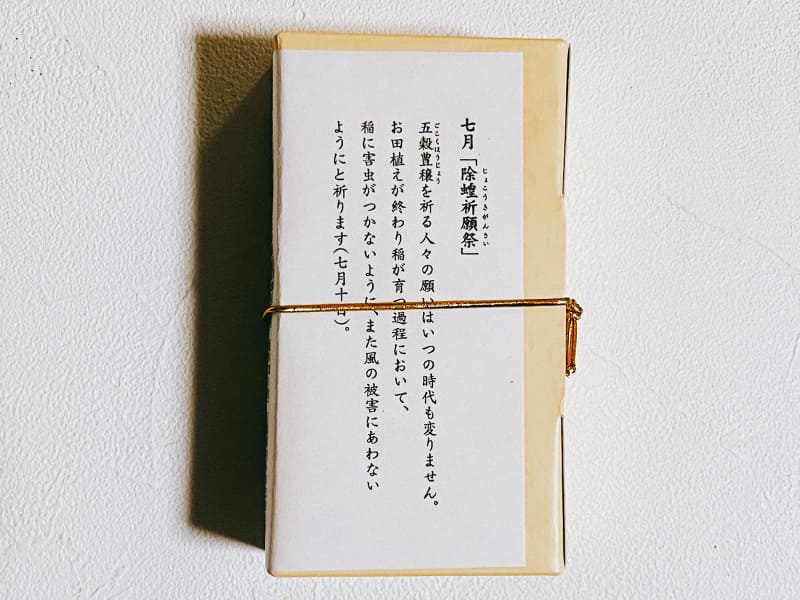 七月「除蝗祈願祭」
じょこうきがんさい
五穀豊穣を祈る人々の願いはいつの時代も変りません。
ごこくほうじょう
お田植えが終わり稲が育つ過程において、
稲に害虫がつかないように、また風の被害にあわない
ようにと祈ります(七月十日)。